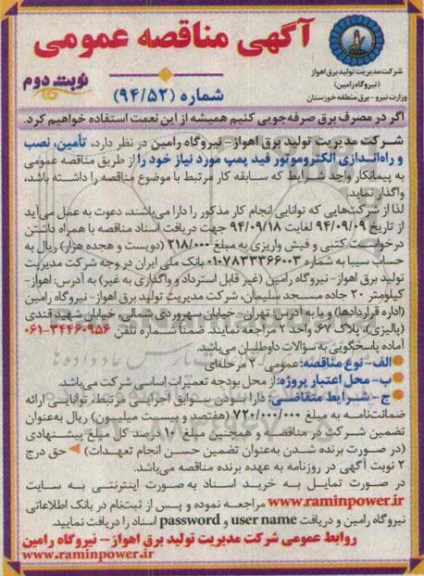 آگهی مناقصه عمومی
شرکت مدیریت تولید برق اهواز
(نیروگاه رامین)
وزارت نیرو - برق منطقه خوزستان
نوبت دوم
شماره (۹۴/۵۲)
اگر در مصرف برق صرفه‌جویی کنیم همیشه از این نعمت استفاده خواهیم کرد.
شرکت مدیریت تولید برق اهواز - نیروگاه رامین در نظر دارد، تأمین، نصب
و راه‌اندازی الکتروموتور فید پمپ مورد نیاز خود را از طریق مناقصه عمومی
به پیمانکار واجد شرایط که سابقه کار مرتبط با موضوع مناقصه را داشته باشد،
واگذار نماید.
لذا از شرکت‌هایی که توانایی انجام کار مذکور را دارا می‌باشند، دعوت به عمل می‌آید
از تاریخ ۹۴/۰۹/۰۹ لغایت ۹۴/۰۹/۱۸ جهت دریافت اسناد مناقصه با همراه داشتن
درخواست کتبی و فیش واریزی به مبلغ ۲۱۸/۰۰۰ (دویست و هجده هزار) ریال به
حساب سیبا به شماره ۰۱۰۷۸۳۳۳۶۶۰۰۳ بانک ملی ایران در وجه شرکت مدیریت
تولید برق اهواز - نیروگاه رامین (غیر قابل استرداد و واگذاری به غیر) به آدرس: اهواز -
کیلومتر ۲۰ جاده مسجد سلیمان، شرکت مدیریت تولید برق اهواز - نیروگاه رامین
(اداره قراردادها) و یا به آدرس تهران - خیابان سهروردی شمالی - خیابان شهید قندی
(پالیزی)، پلاک ۶۷، واحد ۲ مراجعه نمایند. ضمنا شماره تلفن ۳۴۴۶۰۹۵۶-۰۶۱
آماده پاسخگویی به سؤالات داوطلبان می‌باشد.
الف - نوع مناقصه: عمومی ۲ مرحله‌ای
ب - محل اعتبار پروژه: از محل بودجه تعمیرات اساسی شرکت می‌باشد.
ج - شرایط متقاضی: دارا بودن سوابق اجرایی مرتبط، توانایی ارائه
ضمانت‌نامه به مبلغ ۷۲۰/۰۰۰/۰۰۰ (هفتصد و بیست میلیون) ریال به‌عنوان
تضمین شرکت در مناقصه و همچنین مبلغ ۱۰ درصد کل مبلغ پیشنهادی
(در صورت برنده شدن به‌عنوان تضمین حسن انجام تعهدات) حق درج
۲ نوبت آگهی در روزنامه به عهده برنده مناقصه می‌باشد.
در صورت تمایل به خرید اسناد به صورت اینترنتی به سایت
www.raminpower.ir مراجعه نموده و پس از ثبت‌نام در بانک اطلاعاتی
نیروگاه رامین و دریافت user name و password اسناد را دریافت نمایید.
روابط عمومی شرکت مدیریت تولید برق اهواز - نیروگاه رامین
www.raminpower.ir